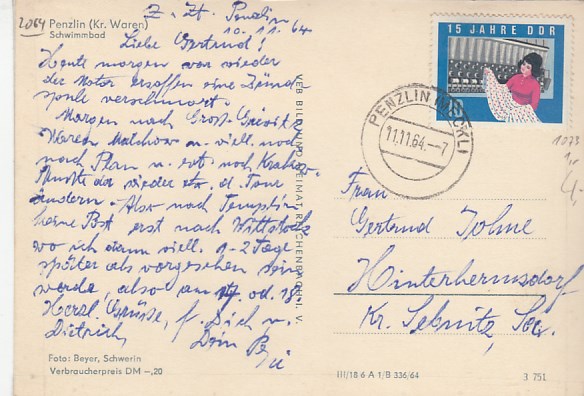 2064
Penzlin (Kr. Waren)
Schwimmbad
Z. Zt. Penzlin
10.11.64
Liebe Gertrud!
Heute morgen war wieder
der Motor ersoffen eine Zünd-
spule verschmort.
Morgen nach Groß-Gievitz
Waren Malchow u. viell. noch
nach Plau u. evt. noch Krakow
Mußte da wieder etw. d. Tour
ändern. Also nach Templin
keine Post erst nach Wittstock
wo ich dann viell. 1-2 Tage
später als vorgesehen sein
werde, also am 17. od. 18.
Herzl. Grüße, f. Dich u.
Dietrich, Dein
Foto: Beyer, Schwerin
Verbraucherpreis DM -,20
VEB BILD UND HEIMAT REICHENBACH I. V.
15 JAHRE DDR
PENZLIN (MECKL)
11.11.64.--7
1073
4,
Frau
Gertrud
Hinterhermsdorf
Kr. Sebnitz, Sa.
III/18 6 A 1/B 336/64
3 751